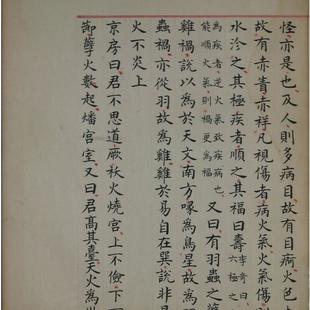 怪亦是也及人則多病目故有目痾火色
故有赤眚赤祥凡視傷者病火氣火氣傷則
水沴之其極疾者順之其福曰壽李奇曰六極之
為疾者逆火氣致疾病也能順火氣則禍更為福又曰有羽蟲之孽
雞禍說以為於天文南方喙為鳥星故為
蟲禍亦從羽故為雞雞於易自在巽說非是
火不炎上
京房曰君不思道厥妖火燒宮上不儉下
節孽火數起燔宮室又曰君高其臺天火為